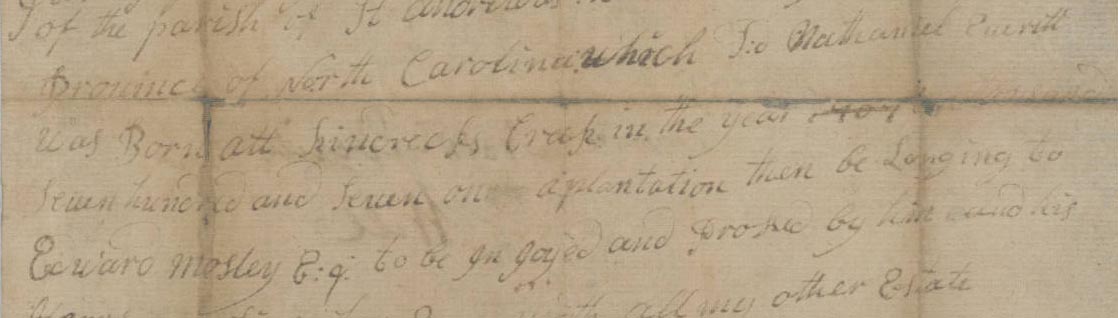 of the parish of St Andrews in
province of North Carolina which So Nathaniel Everitt
was Born att Kindrecks Creek in the year 1707 thousand
Seven hundred and Seven on aplantation then be Longing to
Edward Mosley E:q: to be In Joyed and prossed by him and his
with all my other Estate